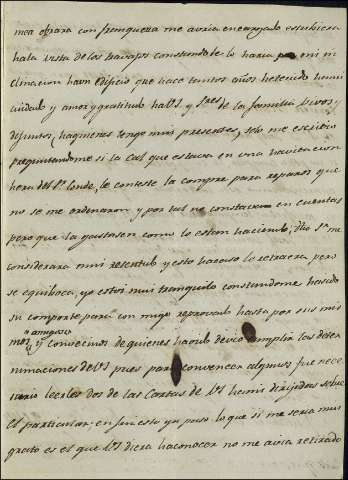 mea obrara con franqueza me avria encargado estubiera
hala vista de los travajos constandole lo haria por mi in
clinacion haun edificio que hace tantos años hetenido hemi
cuidado y amor y gratitud haVs. y Sres. de la familia vivos y
difuntos, haquienes tengo mui presentes, solo me escribio
preguntandome si la Cal que estava en una havitacion
hera del Sr. Conde, le conteste la compre para reparos que
no se me ordenaron y por tal no constavan en cuentas
pero que la gastasen como lo estan haciendo; dho Sr. me
considerara mui resentido y esto hacaso le retraera pero
se equiboca, yo estoi mui tranquilo constandome hasido
su comporte para con migo reprovado hasta por sus mis
mos amigos y convecinos de quienes ha devido cumplir las deter
minaciones de Vs. pues para convencer algunos fue nece
sario leerles dos de las Cartas de Vs. hemi dirijidas sobre
el particular: en fin esto ya paso lo que si me seria mui
grato es el que Vs. diera haconocer no me avia retirado